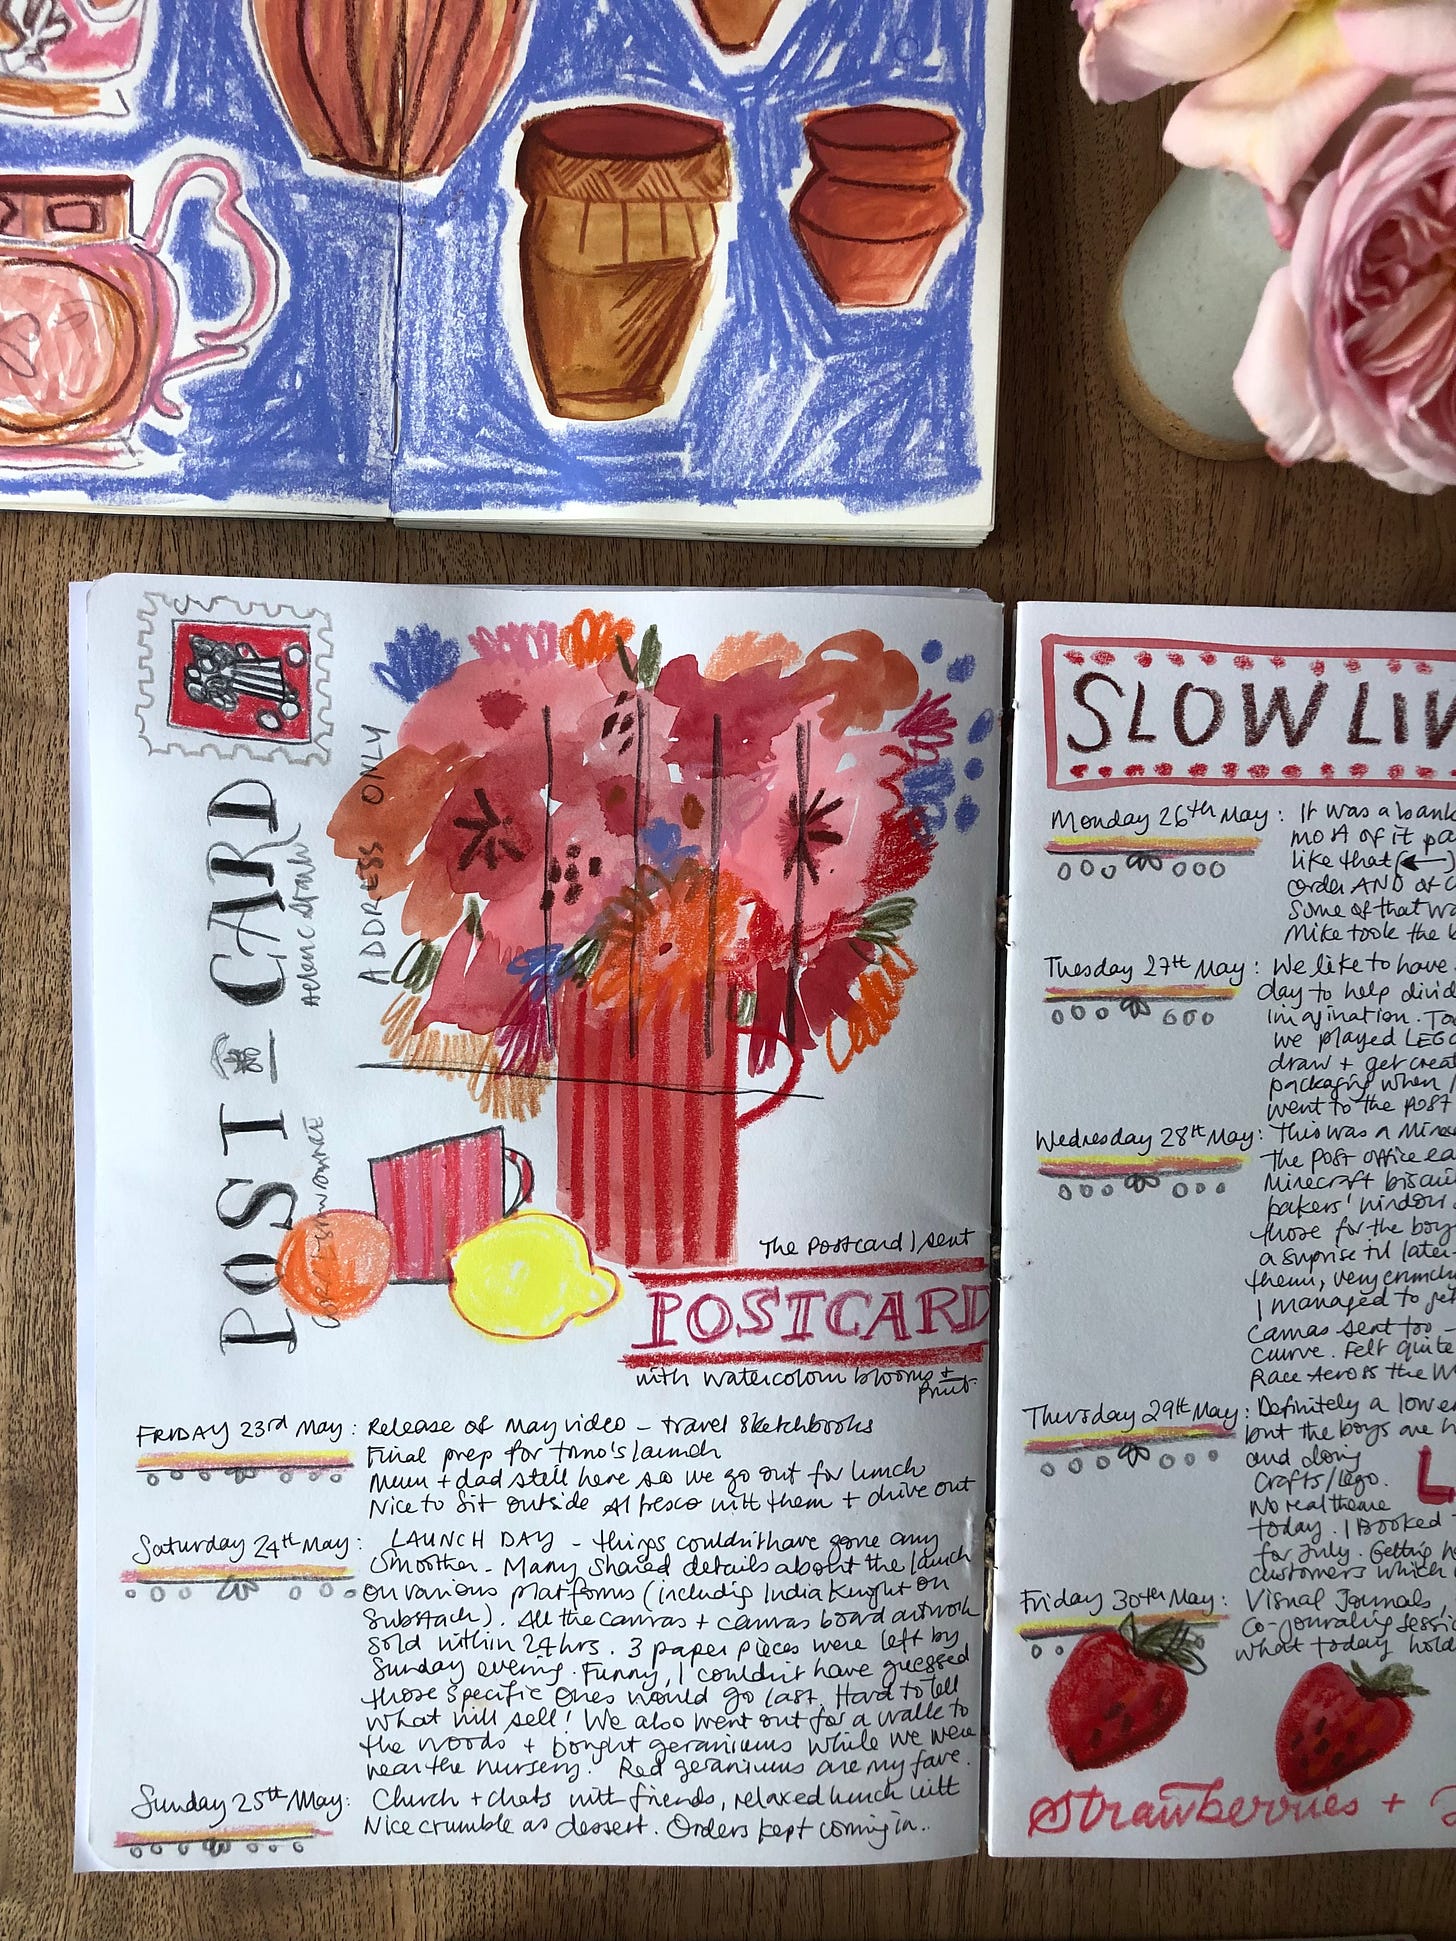 POST CARD
ADDRESS ONLY
CORRESPONDANCE
The Postcard I sent
POSTCARD
with watercolour blooms +
print.
FRIDAY 23rd May: Release of May video – travel sketchbooks
Final prep for tmo's launch
Mum + dad still here so we go out for lunch
Nice to sit outside Al fresco with them + drive out
Saturday 24th May: LAUNCH DAY – things couldn't have gone any
smoother. Many shared details about the launch
on various platforms (including India Knight on
Substack). All the canvas + canvas board artwork
sold within 24hrs. 3 paper pieces were left by
Sunday evening. Funny, I couldn't have guessed
those specific ones would go last. Hard to tell
what will sell! We also went out for a walk to
the woods + bought geraniums while we were
near the nursery. Red geraniums are my fave.
Sunday 25th May: Church + chats with friends, relaxed lunch with
Nice crumble as dessert. Orders kept coming in..
SLOW LIV
Monday 26th May: It was a bank
most of it pa
like that (←)
order AND of c
Some of that wa
Mike took the b
Tuesday 27th May: We like to have
day to help divid
imagination. To
we played LEGO
draw + get crea
packaging when
went to the post
Wednesday 28th May: This was a Mine
the post office ea
Minecraft biscui
bakers' window
those for the boy
a surprise til later
them, very crunchy
I managed to get
canvas sent too –
curve. Felt quite
Race Across the W
Thursday 29th May: Definitely a lower
but the boys are h
and doing
Crafts/Lego.
No real theme
today. I Booked
for July. Getting he
customers which
L
Friday 30th May: Visual Journals,
Co-journaling sessio
what today hold
Strawberries +